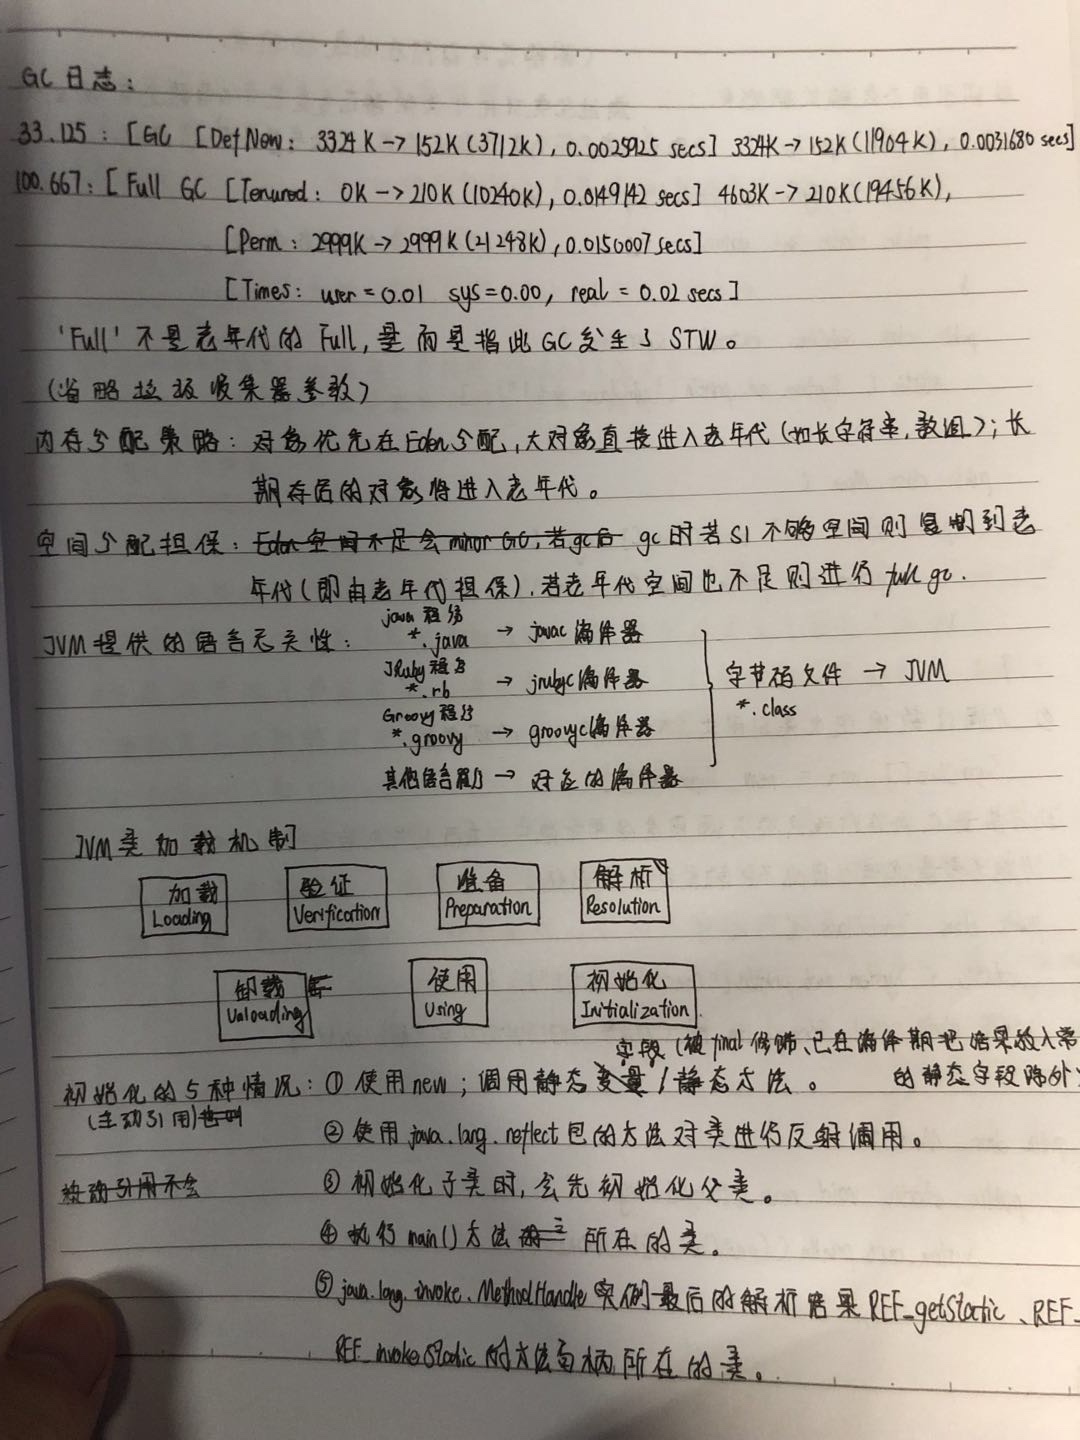 GC日志：
33.125：[GC [DefNew：3324K→152K(3712K), 0.0025925 secs] 3324K→152K(11904K), 0.0031680 secs]
100.667：[Full GC [Tenured：0K→210K(10240K), 0.0149142 secs] 4603K→210K(19456K),
[Perm：2999K→2999K(21248K), 0.0150007 secs]
[Times：user=0.01 sys=0.00, real=0.02 secs]
'Full'不是老年代的Full，而是指此GC发生了STW。
(省略垃圾收集器参数)
内存分配策略：对象优先在Eden分配，大对象直接进入老年代(如长字符串，数组)；长
期存活的对象将进入老年代。
空间分配担保：Eden空间不足会minor GC，若gc后 gc时若S1不够空间则复制到老
年代(即由老年代担保)，若老年代空间也不足则进行full gc.
JVM提供的语言无关性：
java程序
*.java → javac编译器
JRuby程序
*.rb → jrubyc编译器
Groovy程序
*.groovy → groovyc编译器
其他语言程序 → 对应的编译器
字节码文件 → JVM
*.class
JVM类加载机制
加载 验证 准备 解析
Loading Verification Preparation Resolution
卸载 使用 初始化
Unloading Using Initialization
字段(被final修饰、已在编译期把结果放入常
的静态字段除外
初始化的5种情况：①使用new；调用静态变量/静态方法。
(主动引用)
②使用java.lang.reflect包的方法对类进行反射调用。
被动引用不会
③初始化子类时，会先初始化父类。
④执行main()方法 所在的类。
⑤java.lang.invoke.MethodHandle实例最后的解析结果REF_getStatic、REF_
REF_invokeStatic的方法句柄所在的类。